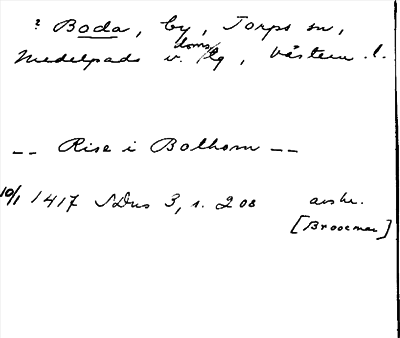 ? Boda, by, Torps sn,
Medelpads v. doms/lg, Västern. l.
-- Rise i Bolhom --
10/1 1417 SDns 3, s. 208 avskr.
[Broocman]